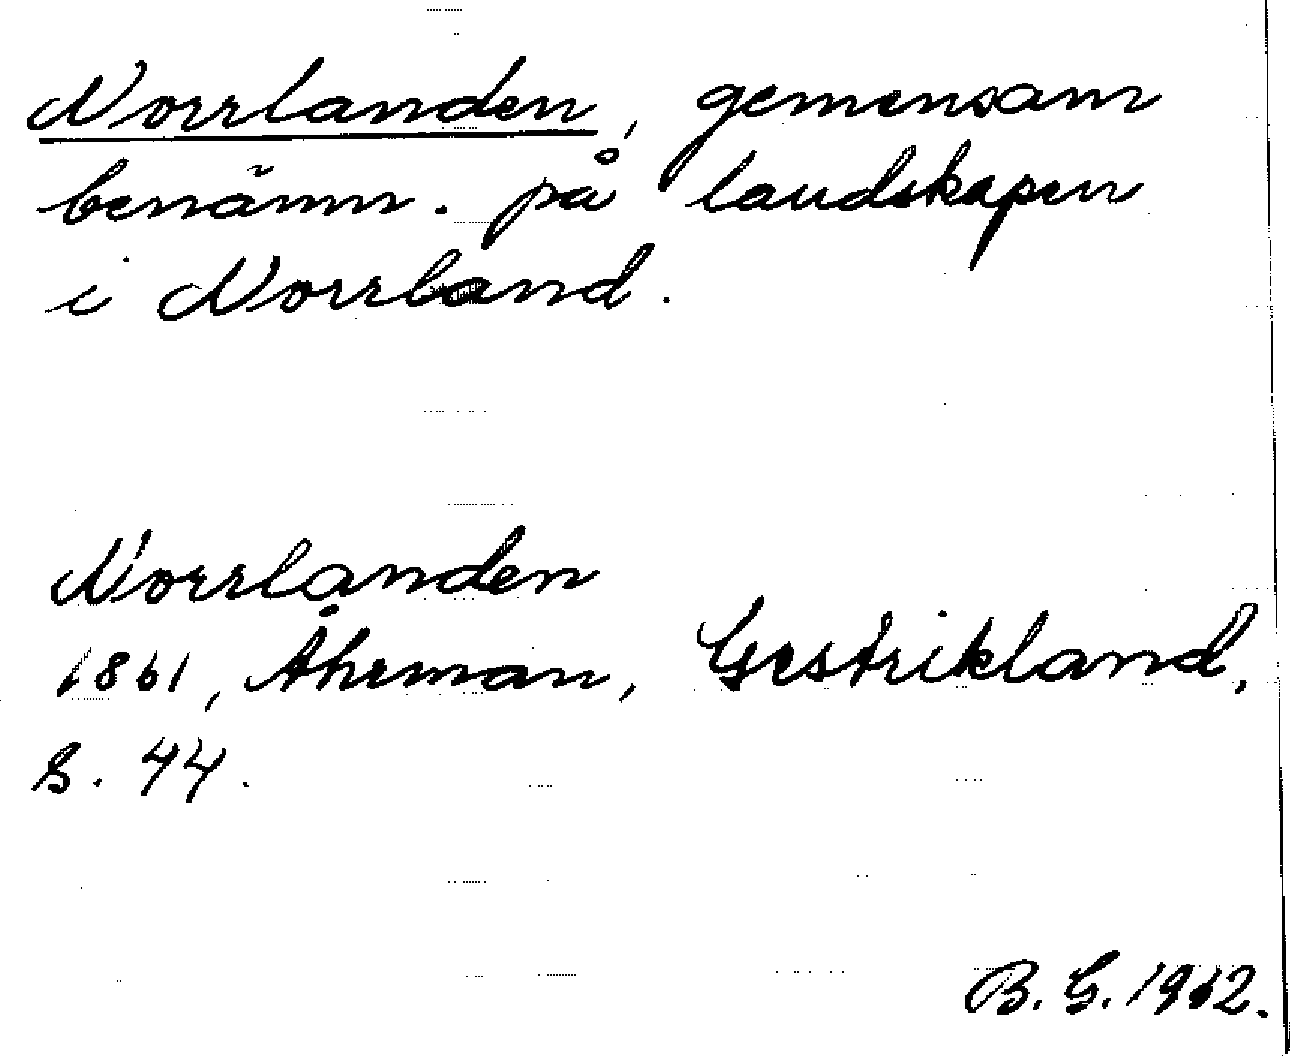 Norrlanden, gemensam
benämn. på landskapen
i Norrland.
Norrlanden
1861, Åhrman, Gestrikland,
s. 44.
B. G. 1962.